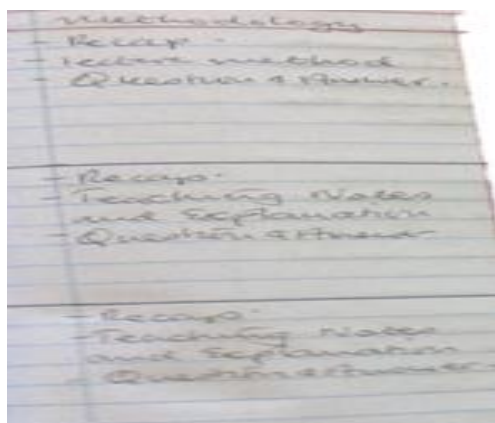 Methodology
- Recap.
- Lecture method
- Question & Answer.
- Recap.
- Teaching Notes
and Explanation
- Question & Answer
- Recap.
- Teaching Notes
and Explanation
- Question & Answer.